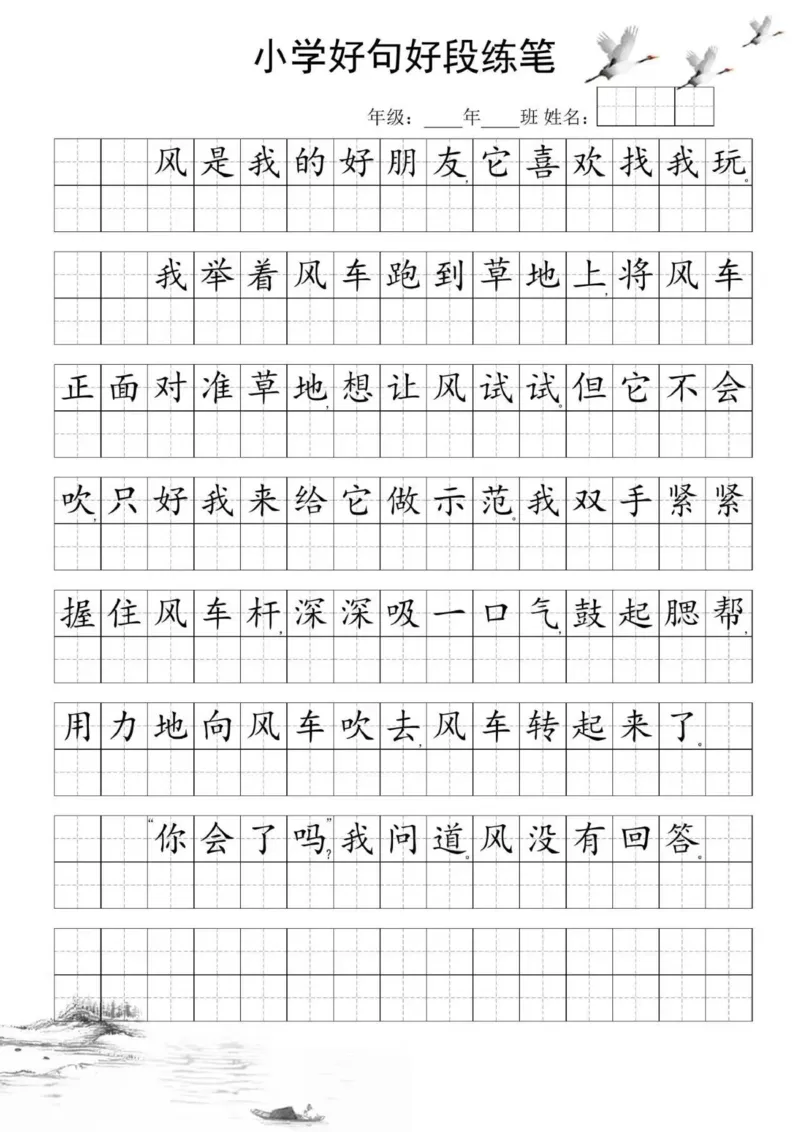 小学好句好段练笔
年级：____年____班 姓名：
风是我的好朋友，它喜欢找我玩。
我举着风车跑到草地上，将风车
正面对准草地，想让风试试。但它不会
吹，只好我来给它做示范。我双手紧紧
握住风车杆，深深吸一口气，鼓起腮帮，
用力地向风车吹去，风车转起来了。
“你会了吗？”我问道。风没有回答。